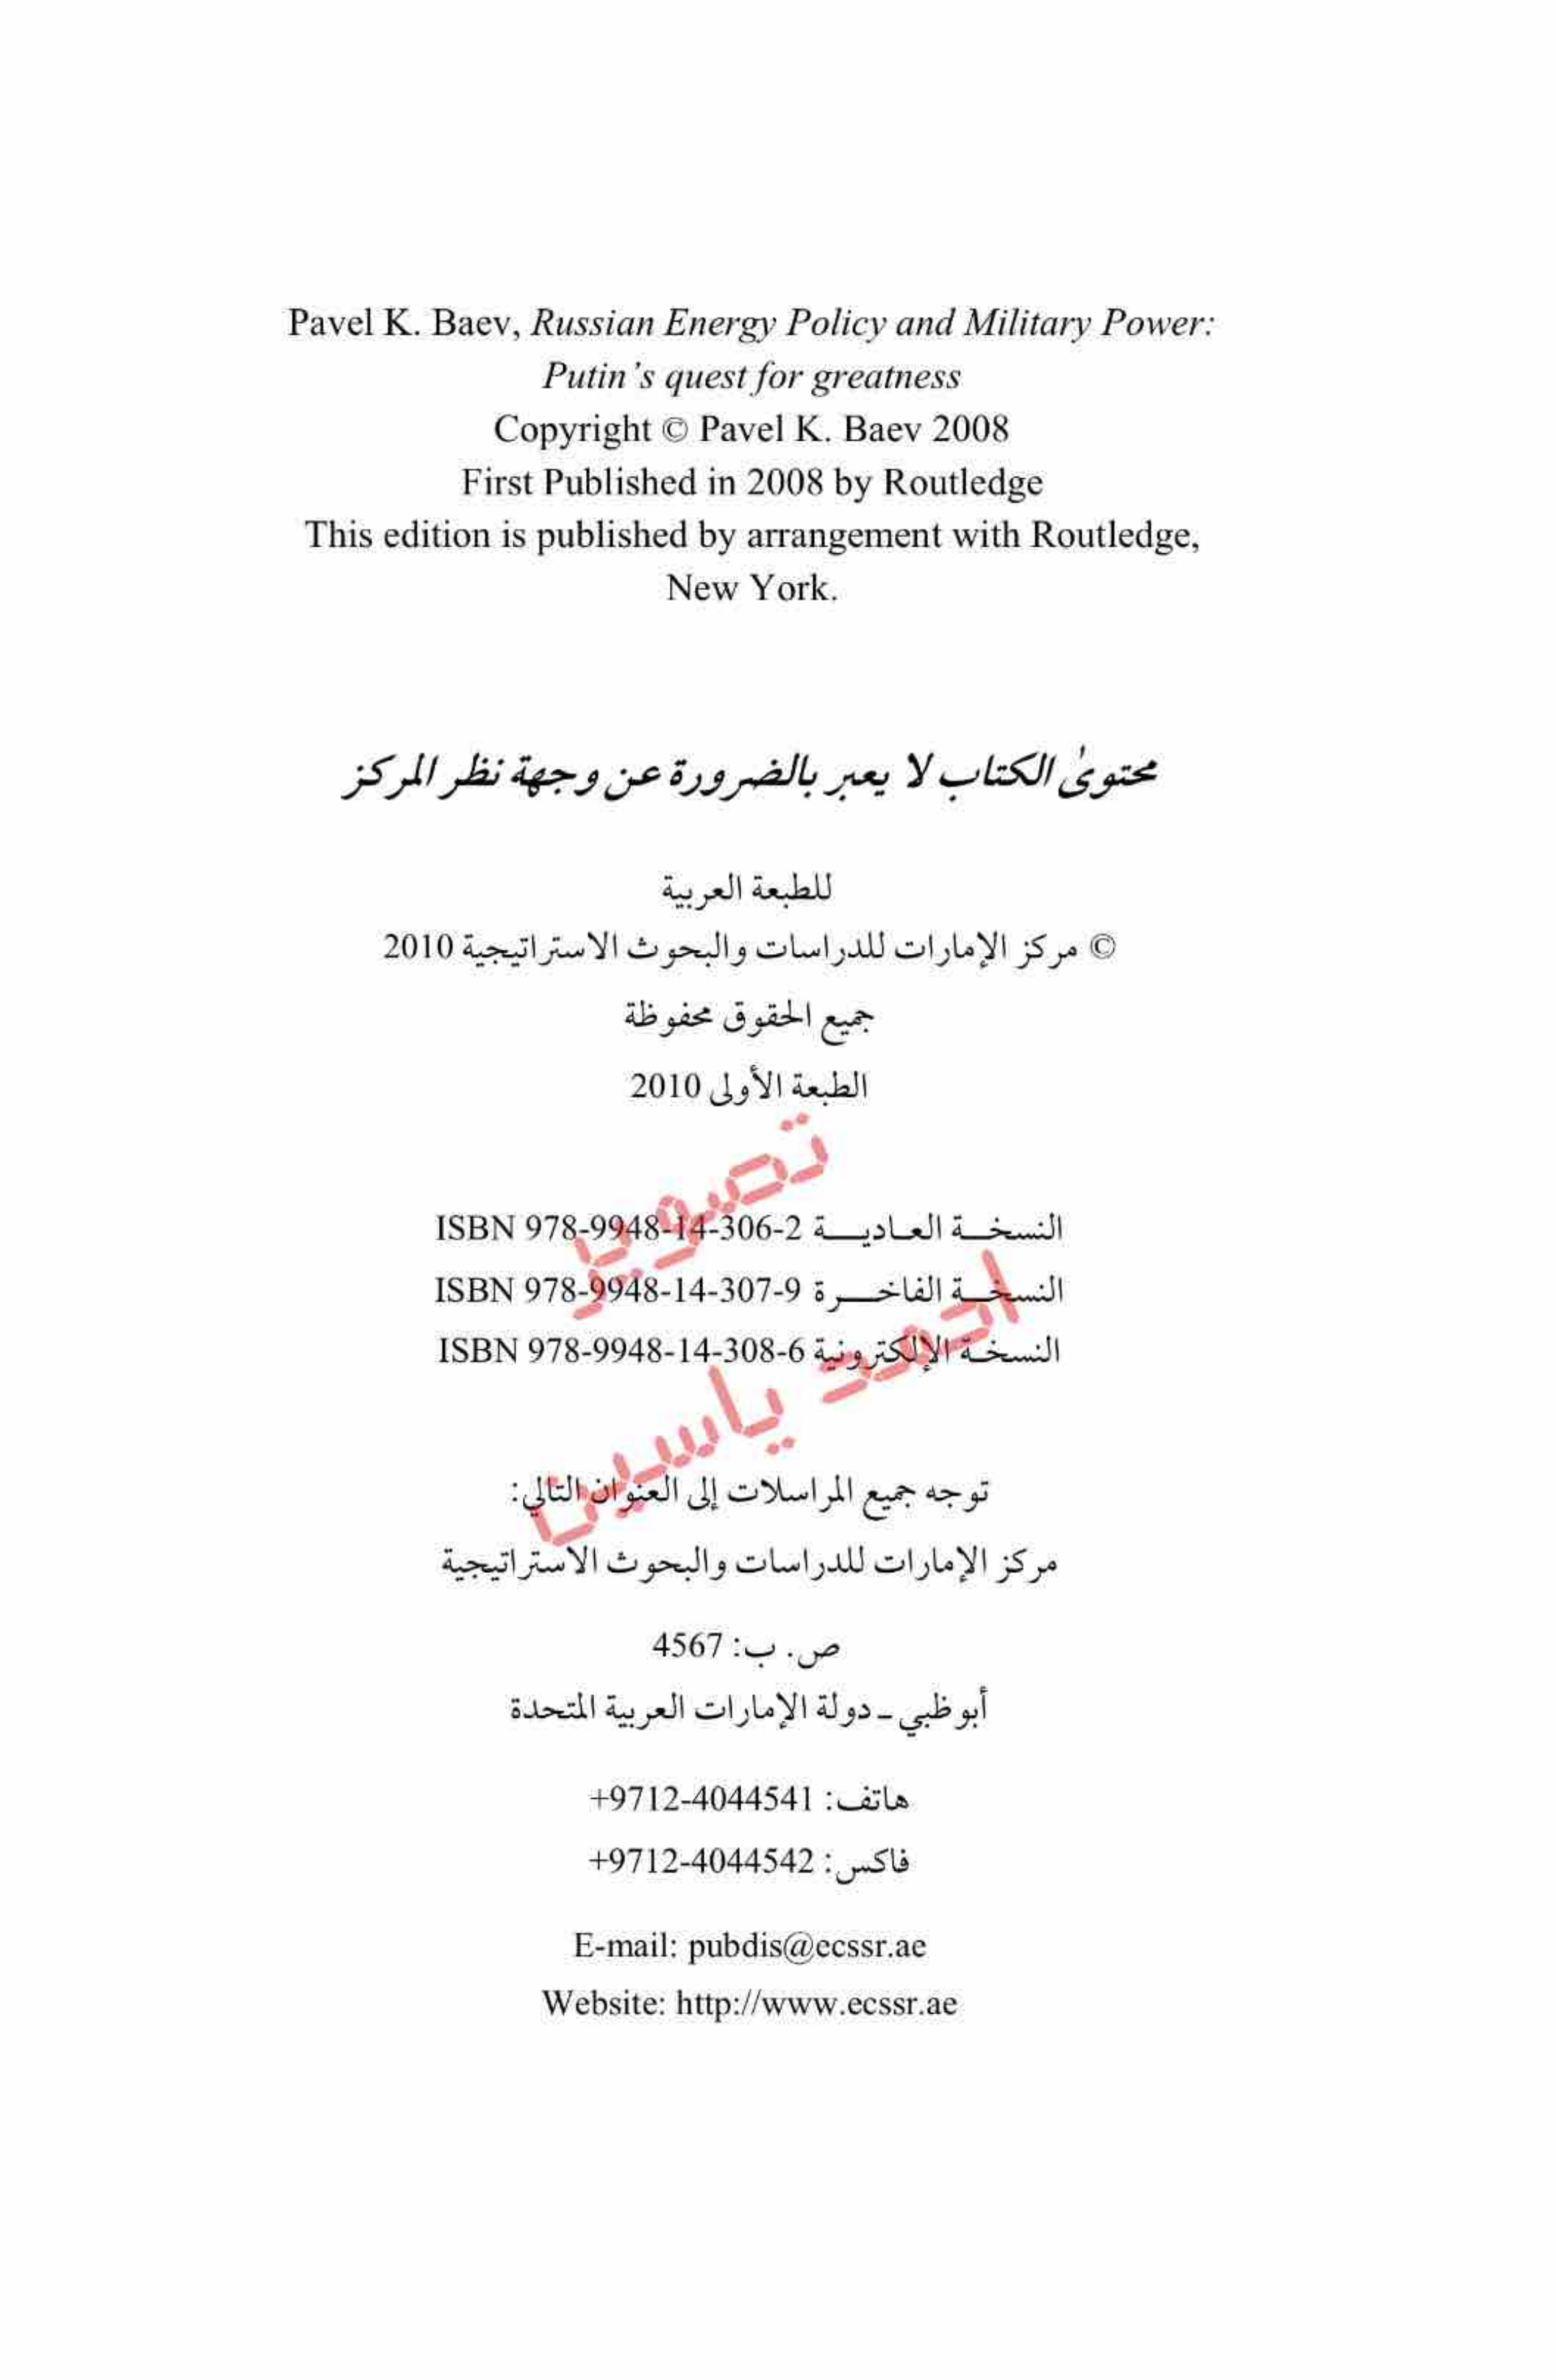 Pavel K. Baev, Russian Energy Policy and Military Power:
Putin's quest for greatness
Copyright © Pavel K. Baev 2008
First Published in 2008 by Routledge
This edition is published by arrangement with Routledge,
New York.
محتوىٰ الكتاب لا يعبر بالضرورة عن وجهة نظر المركز
للطبعة العربية
© مركز الإمارات للدراسات والبحوث الاستراتيجية 2010
جميع الحقوق محفوظة
الطبعة الأولى 2010
تصوير
النسخة العادية ISBN 978-9948-14-306-2
النسخة الفاخرة ISBN 978-9948-14-307-9
النسخة الإلكترونية ISBN 978-9948-14-308-6
احمد ياسين
توجه جميع المراسلات إلى العنوان التالي:
مركز الإمارات للدراسات والبحوث الاستراتيجية
ص. ب: 4567
أبو ظبي ـ دولة الإمارات العربية المتحدة
هاتف: 4044541-9712+
فاكس: 4044542-9712+
E-mail: pubdis@ecssr.ae
Website: http://www.ecssr.ae